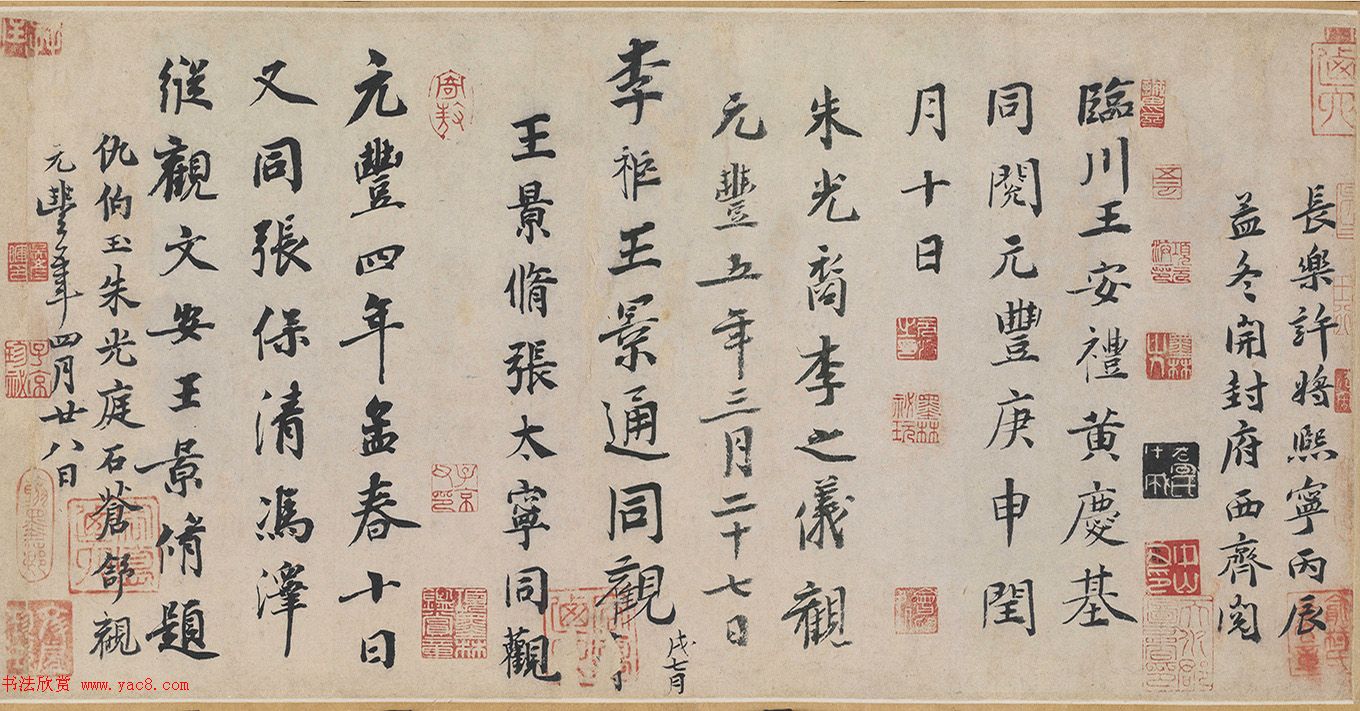 長樂許將熙寧丙辰
益冬開封府西齊閱
臨川王安禮黄慶基
同閱元豐庚申閏
月十日
朱光裔李之儀觀
元豐五年三月二十七日
李祚王景通同觀
戊七月
王景脩張太寧同觀
元豐四年孟春十日
又同張保清馮澤
縱觀文安王景脩題
仇伯玉朱光庭石蒼舒觀
元豐 年四月廿八日
子京
墨林祕玩
項元汴印
子京珍祕
中山
書法欣賞 www.yac8.com